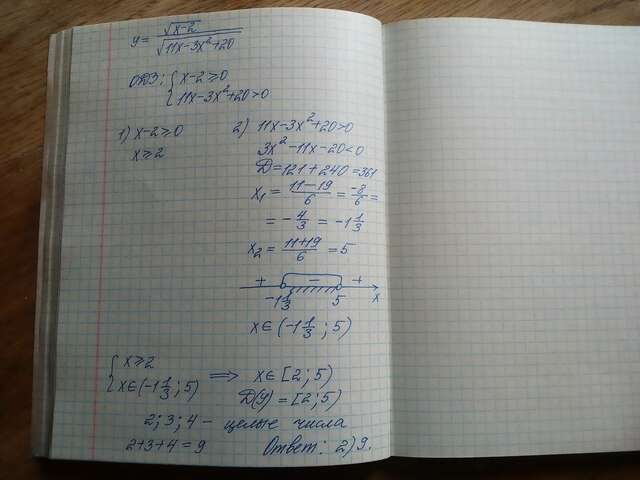 y = √(x-2) / √(11x-3x²+20)
ОДЗ: { x-2≥0
11x-3x²+20>0
1) x-2≥0
x≥2
2) 11x-3x²+20>0
3x²-11x-20<0
D=121+240=361
x₁ = (11-19)/6 = -8/6 =
= -4/3 = -1 1/3
x₂ = (11+19)/6 = 5
+ - +
-1 1/3 5 x
x∈(-1 1/3; 5)
{ x≥2
x∈(-1 1/3; 5) ⟹ x∈[2; 5)
D(y)=[2; 5)
2; 3; 4 - целые числа
2+3+4=9 Ответ: 2) 9.